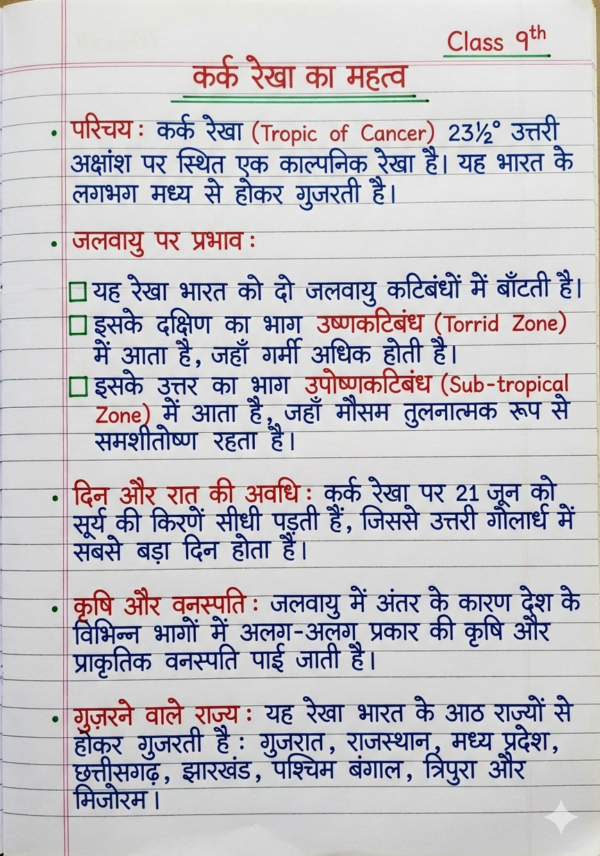 Class 9th
कर्क रेखा का महत्व
• परिचय : कर्क रेखा (Tropic of Cancer) 23½° उत्तरी
अक्षांश पर स्थित एक काल्पनिक रेखा है। यह भारत के
लगभग मध्य से होकर गुजरती है।
• जलवायु पर प्रभाव :
□ यह रेखा भारत को दो जलवायु कटिबंधों में बाँटती है।
□ इसके दक्षिण का भाग उष्णकटिबंध (Torrid Zone)
में आता है, जहाँ गर्मी अधिक होती है।
□ इसके उत्तर का भाग उपोष्णकटिबंध (Sub-tropical
Zone) में आता है, जहाँ मौसम तुलनात्मक रूप से
समशीतोष्ण रहता है।
• दिन और रात की अवधि : कर्क रेखा पर 21 जून को
सूर्य की किरणें सीधी पड़ती हैं, जिससे उत्तरी गोलार्ध में
सबसे बड़ा दिन होता हैं।
• कृषि और वनस्पति : जलवायु में अंतर के कारण देश के
विभिन्न भागों में अलग-अलग प्रकार की कृषि और
प्राकृतिक वनस्पति पाई जाती है।
• गुज़रने वाले राज्य : यह रेखा भारत के आठ राज्यों से
होकर गुजरती है : गुजरात, राजस्थान, मध्य प्रदेश,
छत्तीसगढ़, झारखंड, पश्चिम बंगाल, त्रिपुरा और
मिजोरम।